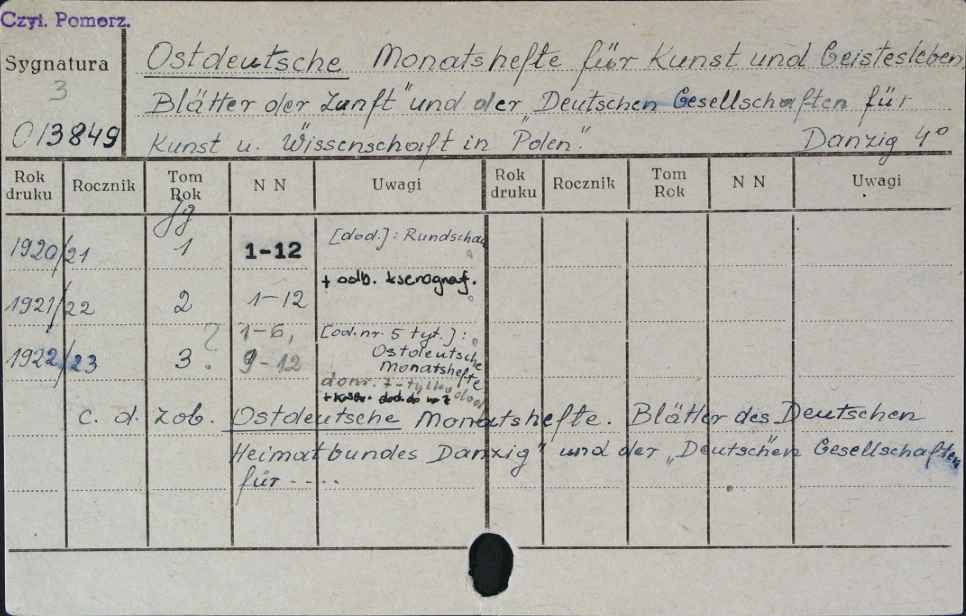 Czyt. Pomorz.
Sygnatura
3
013849
Ostdeutsche Monatshefte für Kunst und Geistesleben,
Blätter der Zunft" und der „Deutschen Gesellschaften für
Kunst u. Wissenschaft in Polen". Danzig 4°
Rok druku Rocznik Tom Rok N N Uwagi Rok druku Rocznik Tom Rok N N Uwagi
Jg
1920/21 1 1-12 [dod.]: Rundschau
+ odb. kserograf.
1921/22 2 1-12
1922/23 3. ? 1-6, 9-12 [od. nr. 5 tyt.]:
Ostdeutsche
Monatshefte
do nr. 7 - tylko dod
c. d. zob. Ostdeutsche Monatshefte. Blätter des Deutschen
Heimatbundes Danzig" und der „Deutschen Gesellschaften
für ----